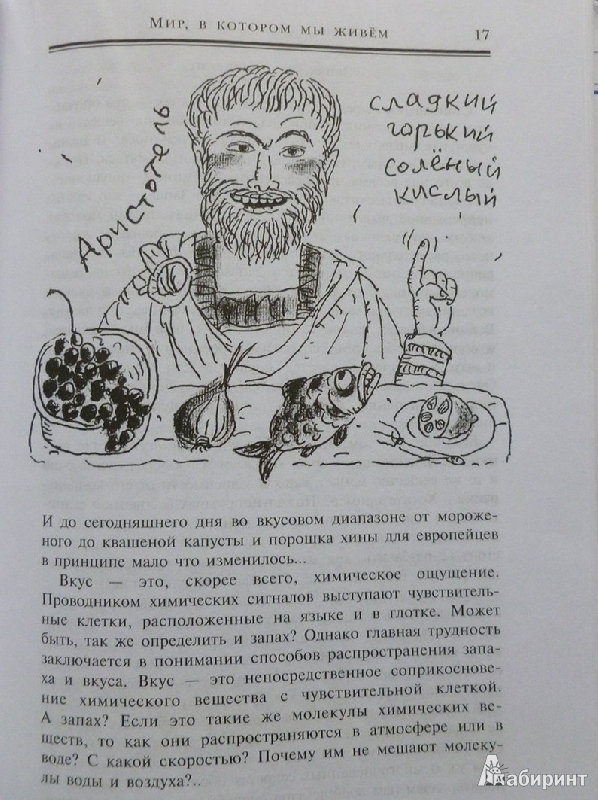 Мир, в котором мы живём 17
Аристотель
сладкий
горький
солёный
кислый
И до сегодняшнего дня во вкусовом диапазоне от мороже-
ного до квашеной капусты и порошка хины для европейцев
в принципе мало что изменилось...
Вкус — это, скорее всего, химическое ощущение.
Проводником химических сигналов выступают чувствитель-
ные клетки, расположенные на языке и в глотке. Может
быть, так же определить и запах? Однако главная трудность
заключается в понимании способов распространения запа-
ха и вкуса. Вкус — это непосредственное соприкоснове-
ние химического вещества с чувствительной клеткой.
А запах? Если это такие же молекулы химических ве-
ществ, то как они распространяются в атмосфере или в
воде? С какой скоростью? Почему им не мешают молеку-
лы воды и воздуха?..
Лабиринт